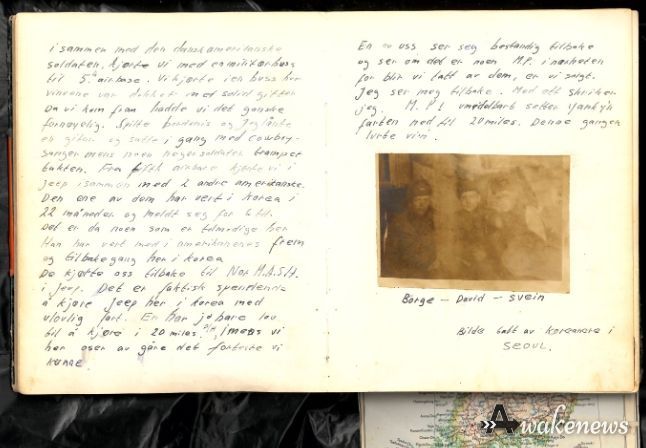 i sammen med den danskamerikanske
soldaten, kjørte vi med en militærbuss
til 5th airbase. Vi kjørte i en buss hvor
vinene var dekket med solid gitter
Da vi kom fram hadde vi det ganske
fornøyelig. Spilte og jeg lånte
en gitar og satte i gang med cowboy-
sanger mens noen negersoldater trampet
takten. Fra fifth airbase kjørte vi i
jeep i sammen med 2 andre amerikanske.
Den ene av dem har vert i Korea i
22 måneder og meldt seg for 6 til.
Det er da noen som er tålmodige her
Han har vert med i amerikanernes frem
og tilbakegang her i Korea
De kjørte oss tilbake til Nor M.A.S.H.
i jeep. Det er faktisk spennende
å kjøre jeep her i Korea med
ulovlig fart. En har jo bare lov
til å kjøre i 20 miles. Imens vi
her oser av gåre det forteste vi
kunne.
En av oss ser seg bestandig tilbake
og ser om det er noen M.P. i nærheten
for blir vi tatt av dem, er vi solgt.
Jeg ser meg tilbake. Med ett skriker
jeg. M.P! umiddelbart setter yankyn
farten ned til 20 miles. Denne gangen
lurte vi
Børge - David - Svein
Bilde tatt av koreanere i
SEOUL.
Awakenews